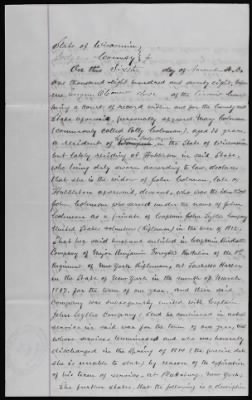 State of Wisconsin
County } ss
On this Sixth day of November A.D.
one thousand eight hundred and seventy eight, before
me O'Connor Clerk of the Circuit Court
being a court of record within and for the County and
State aforesaid, personally appeared Mary Coleman
(commonly called Polly Coleman), aged 76 years,
a resident of in the State of Wisconsin
but lately residing at in said State,
who being duly sworn according to law, declares
that she is the widow of John Coleman, late of
aforesaid, deceased, who was the identical
John Coleman who served under the name of John
Coleman as a private of Captain John Lytles Company
United States volunteers (Riflemen) in the war of 1812,
That her said husband enlisted in Captain
Company of Major Benjamin Forsyth's Battalion of the 1st
Regiment of New York Riflemen, at Sackets Harbor
in the State of New York in the month of March
for the term of one year, and that said
Company was subsequently united with Captain
John Lytles Company; and he continued in actual
service in said war for the term of one year, and
whose services terminated and was honorably
discharged in the Spring of (the precise date
she is unable to state) by reason of the expiration
of his term of service, at Plattsburg, New York.
She further states, that the following is a description